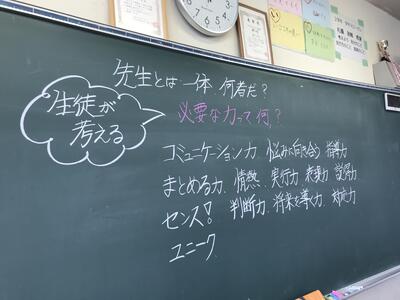 先生とは一体、何者だ?
生徒が
考える
必要な力って何?
コミュニケーション力、悩みに向き合う 指導力
まとめる力、情熱、実行力 表現力 説得力
センス! 判断力 将来を導く力 対応力
ユニーク